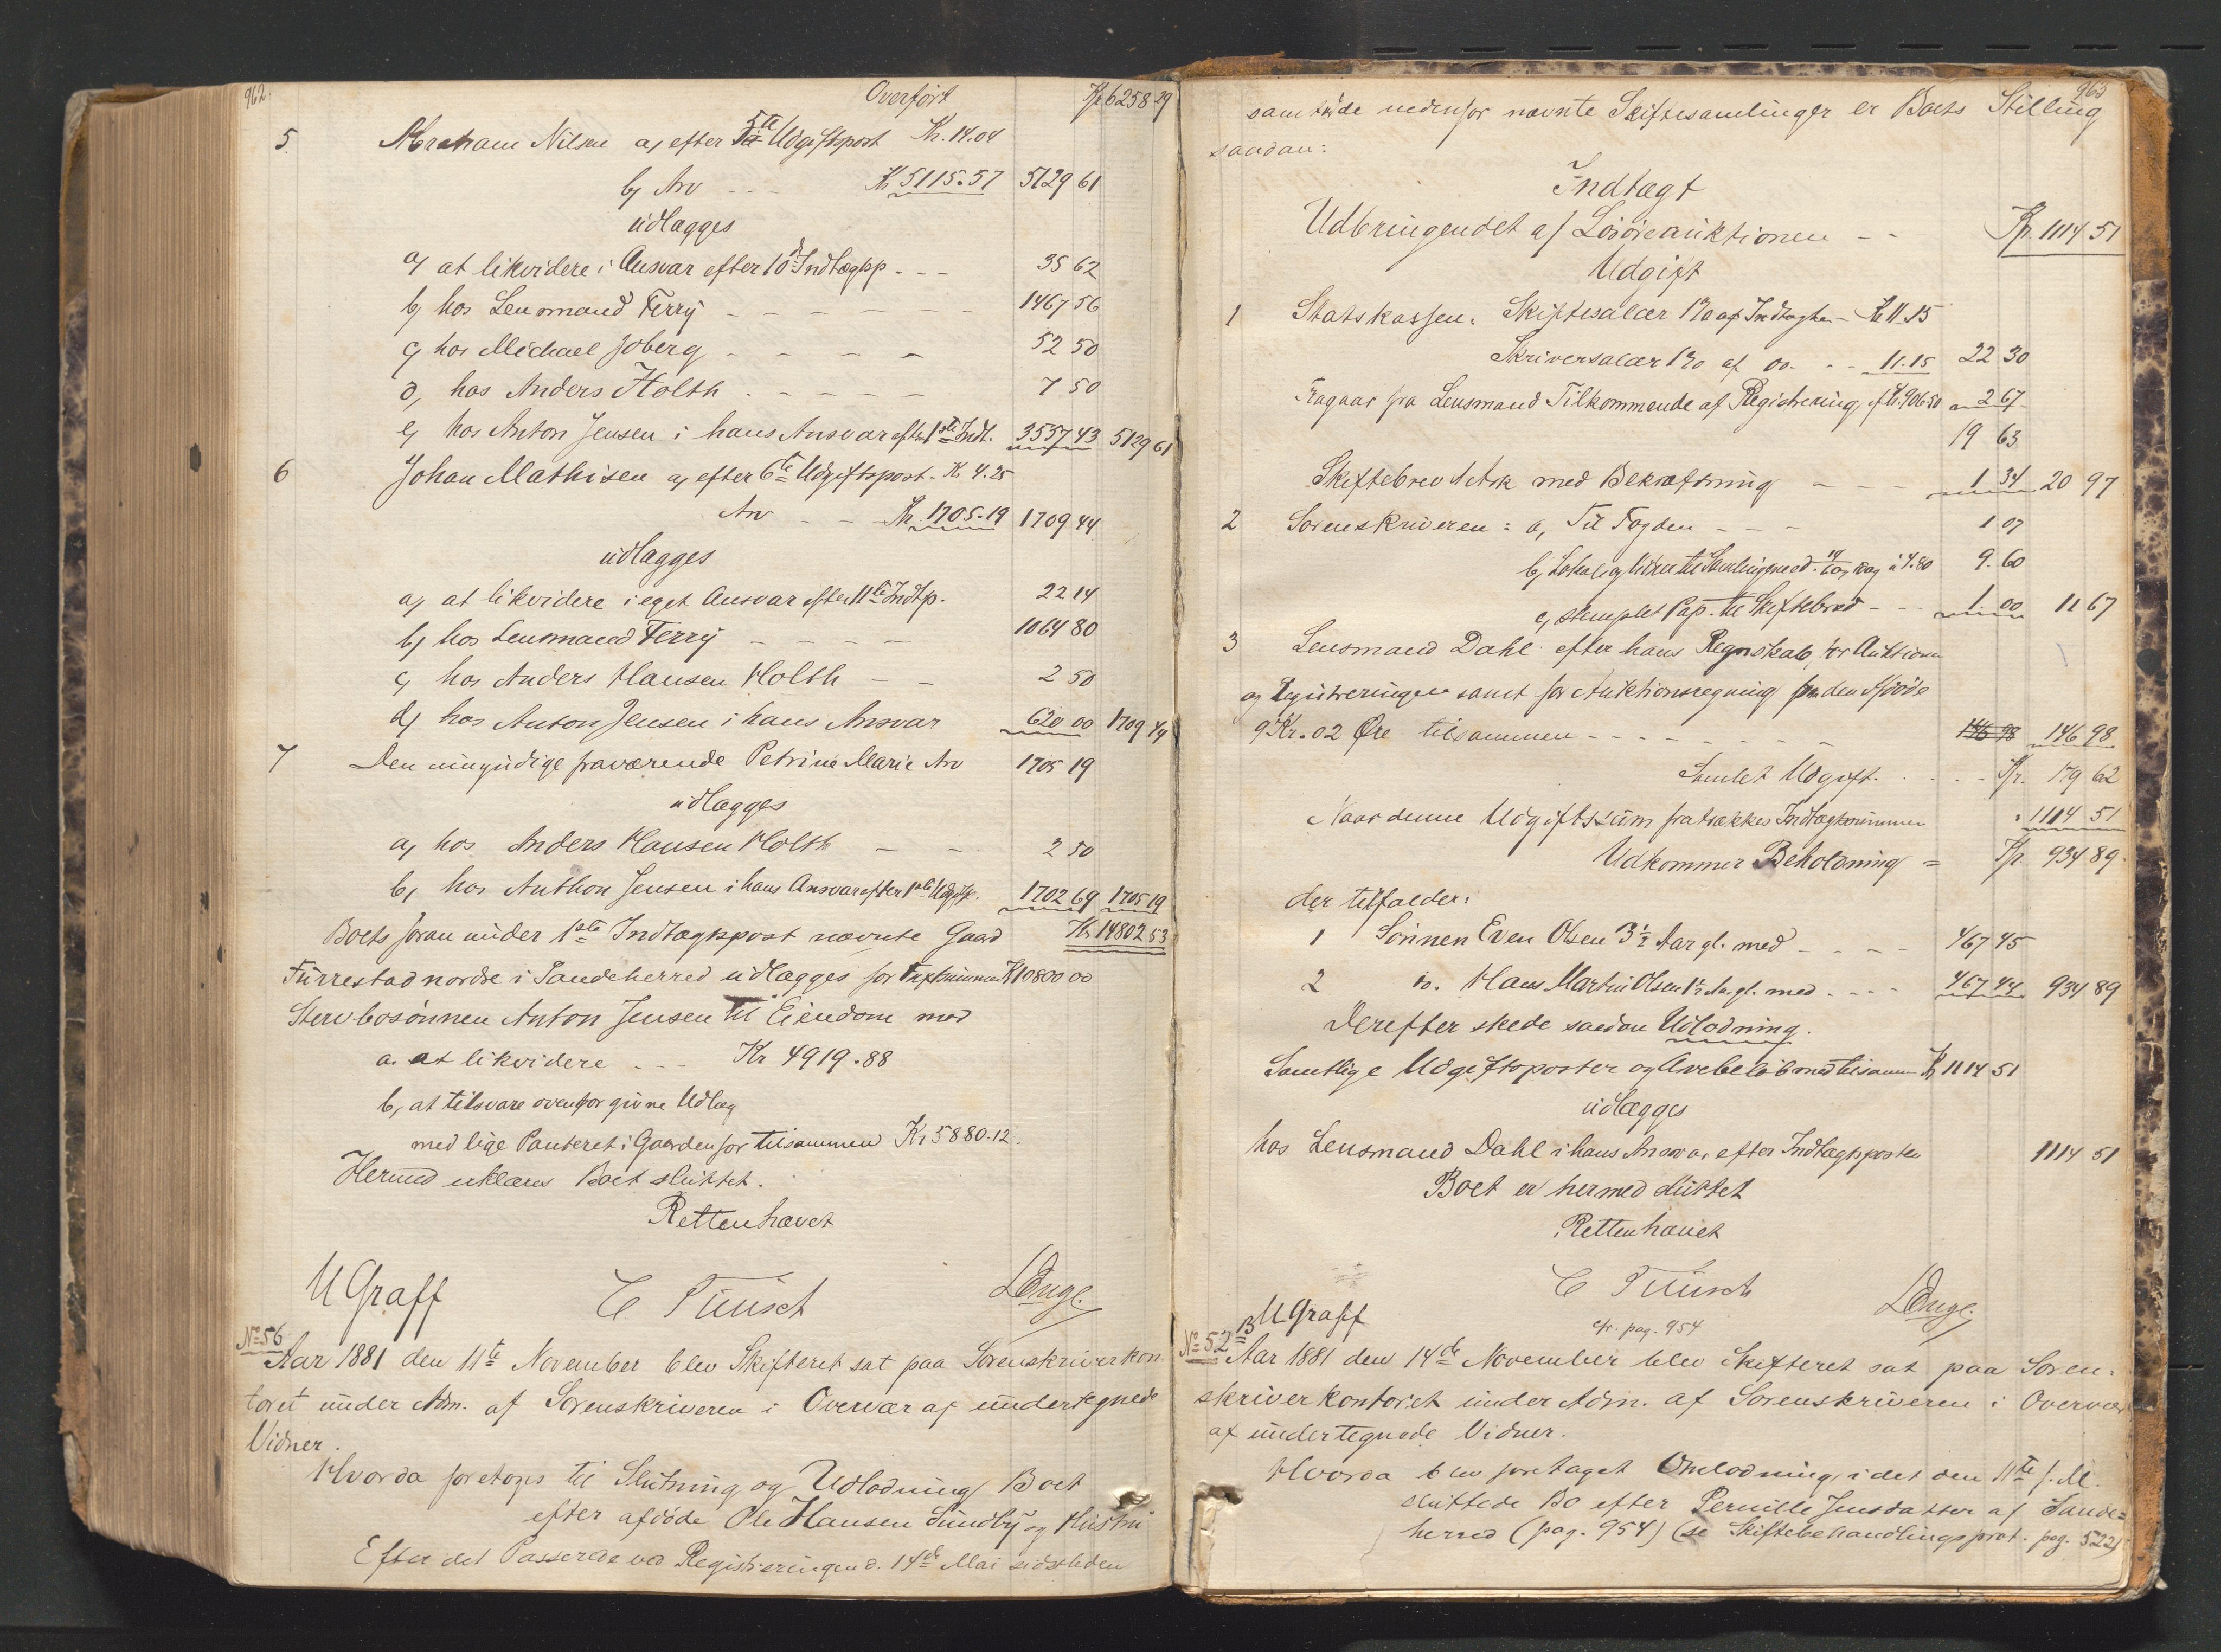 962.
Overført Kr 6258 29
5. Abraham Nilsen a, efter 5te Udgiftspost Kr. 14.04
b, Arv - - - Kr 5115.57 5129 61
udlægges
a, at likvidere i Ansvar efter 10de Indtægtsp. - - - 35 62
b, hos Lensmand Ferry - - - - - - 1467 56
c, hos Michael Joberg - - - - 52 50
d, hos Anders Holth - - - - - 7 50
e, hos Anton Jensen i hans Ansvar efter 1ste Indt. 3557 43 5129 61
6 Johan Mathisen a, efter 6te Udgiftspost - Kr. 4.25
Arv - - Kr. 1705.19 1709 44
udlægges
a, at likvidere i eget Ansvar efter 11te Indtp. 22 14
b, hos Lensmand Ferry - - - - 1064 80
c, hos Anders Hansen Holth - - 2 50
d, hos Anton Jensen i hans Ansvar 620 00 1709 44
7 Den umyndige fraværende Petrine Marie Arv 1705 19
udlægges
a, hos Anders Hansen Holth - - 2 50
b, hos Anthon Jensen i hans Ansvar efter 1ste Udgiftp. 1702 69 1705 19
Boets foran under 1ste Indtægtspost nævnte Gaard Kr 14802 53
Furrestad nordre i Sandeherred udlægges for Taxtsummen Kr 10800 00
Stervbosønnen Anton Jensen til Eiendom mod
a. at likvidere . . . Kr 4919.88
b, at tilsvare ovenfor givne Udlæg
med lige Panteret i Gaarden for tilsammen Kr 5880.12.
Hermed erklæres Boet sluttet.
Retten hævet
U Graff C Tuusch L Enge.
No 56
Aar 1881 den 11te November blev Skifteret sat paa Sorenskriverkon-
toret under Adm. af Sorenskriveren i Overvær af undertegnede
Vidner.
Hvorda foretoges til Slutning og Udlodning Boet
efter afdøde Ole Hansen Sundby og Hustru
Efter det Passerede ved Registreringen d. 14de Mai sidstleden
963
samt de nedenfor nævnte Skiftesamlinger er Boets Stilling
saadan:
Indtægt
Udbringendet af Løsøreauktionen - - Kr. 1114 51
Udgift
1 Statskassen: Skiftesalær 1% af Indtægten - Kr 11.15
Skriversalær 1% af do. - - 11.15 22 30
Fragaar fra Lensmand Tilkommende af Registrering, af Kr. 906 50 2 67
19 63
Skiftebrev 1 Ark med Bekræftning - - - 1 34 20 97
2 Sorenskriveren: a, Til Fogden - - - 1 07
b, 9. 60
c, stemplet Pap. til Skiftebrev - - 1. 00 11 67
3 Lensmand Dahl efter hans Regnskab for Auktionen
og Registreringen samt for Auktionsregning fra den Afdøde
9 Kr. 02 Øre tilsammen - - - - - - - 146 98 146 98
Samlet Udgift. . . . . Kr. 179 62
Naar denne Udgiftssum fratrækkes Indtægtssummen " 1114 51
Udkommer Beholdning = Kr 934 89
der tilfalder:
1 Sønnen Even Olsen 3½ Aar gl. med - - - - 467 45
2 do. Hans Martin Olsen 1½ Aar gl. med - - - - 467 44 934 89
Derefter skede saadan Udlodning.
Samtlige Udgiftsposter og Arvebeløb med tilsammen Kr 1114 51
udlægges
hos Lensmand Dahl i hans Ansvar efter Indtægtsposten 1114 51
Boet er hermed sluttet
Retten hævet
C Tuusch
U Graff L Enge.
cfr. pag. 954
No 52 B
Aar 1881 den 14de November blev Skifteret sat paa Soren-
skriverkontoret under Adm. af Sorenskriveren i Overvær
af undertegnede Vidner.
Hvorda blev foretaget Omlodning, i det den 11te f. M.
sluttede Bo efter Pernille Jensdatter af Sande-
herred (pag. 954) (se Skiftebehandlingsprot. pag. 522)